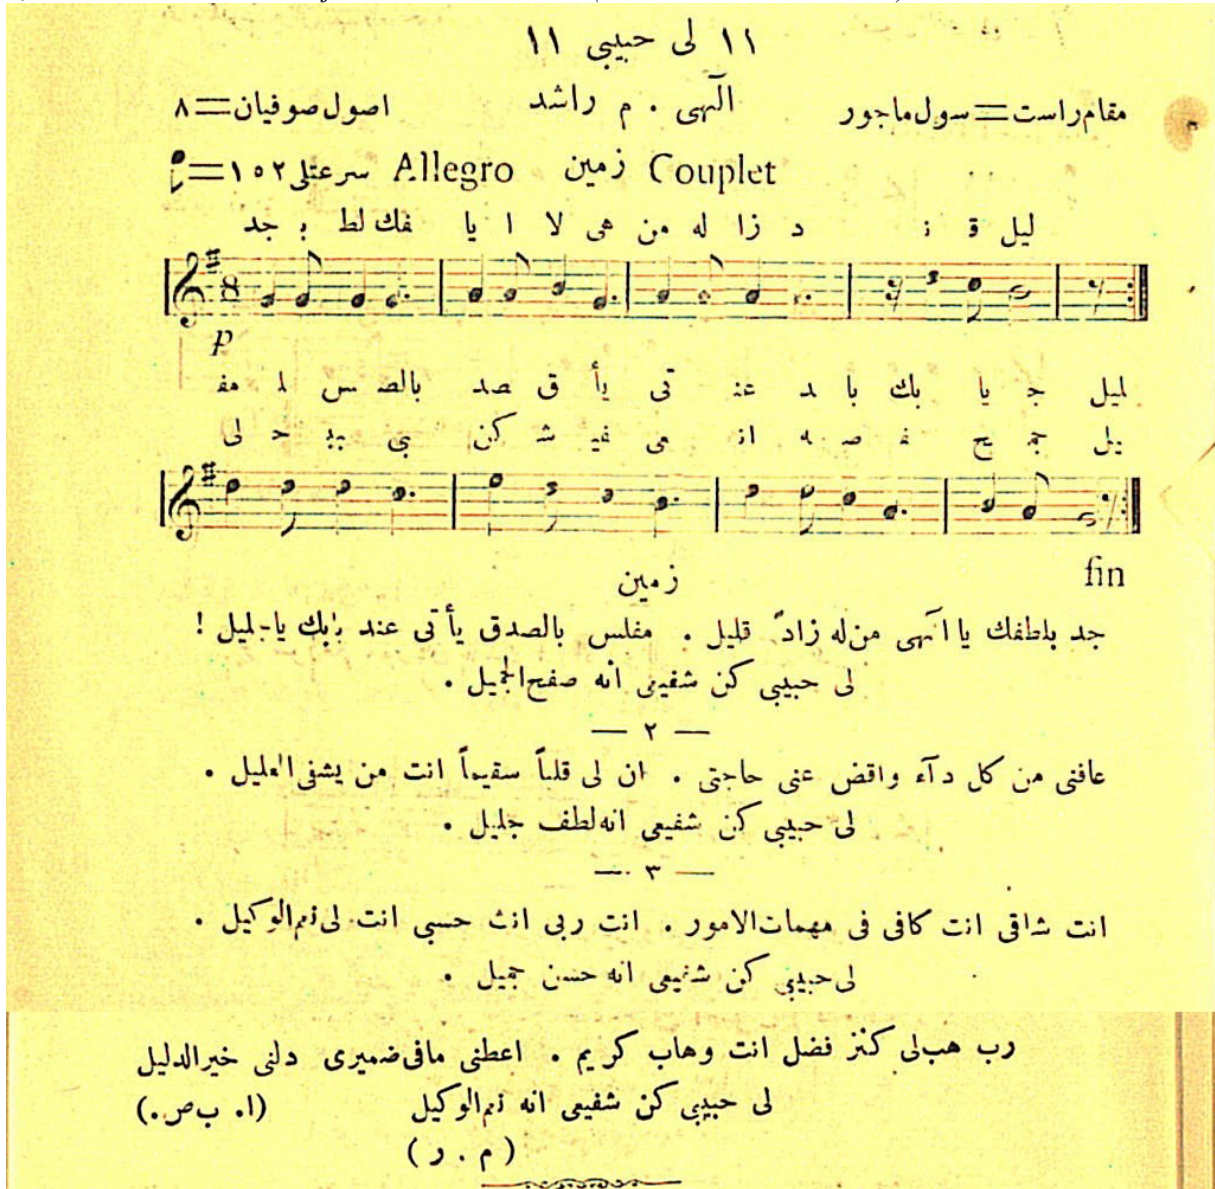 ١١ لى حبيبى ١١
مقام راست = سول ماجور الٓهى . م راشد اصول صوفيان = ٨
سرعتلى ١٥٢ = Allegro زمين Couplet
جد بـ لط فك يا ا لا هى من له زا د قـ ليل
p
مفـ لـ س بالصـ صد ق يأ تى عنـ د با بك يا جـ لميل
لى حـ بيـ بى كن شـ فيـ عى انـ ـه صـ فـ ـح جمـ يل
fin
زمين
جد بلطفك يا الٓهى من له زادٌ قليل . مفلس بالصدق يأتى عند بابك يا جليل !
لى حبيبى كن شفيعى انه صفح الجميل .
— ٢ —
عافنى من كل دآء واقض عنى حاجتى . ان لى قلباً سقيماً انت من يشفى العليل .
لى حبيبى كن شفيعى انه لطف جليل .
— ٣ —
انت شافى انت كافى فى مهمات الامور . انت ربى انت حسبى انت لى نعم الوكيل .
لى حبيبى كن شفيعى انه حسن جميل .
رب هب لى كنز فضل انت وهاب كريم . اعطنى مافى ضميرى دلنى خير الدليل
لى حبيبى كن شفيعى انه نعم الوكيل (ا. ب ص.)
( م . ر )